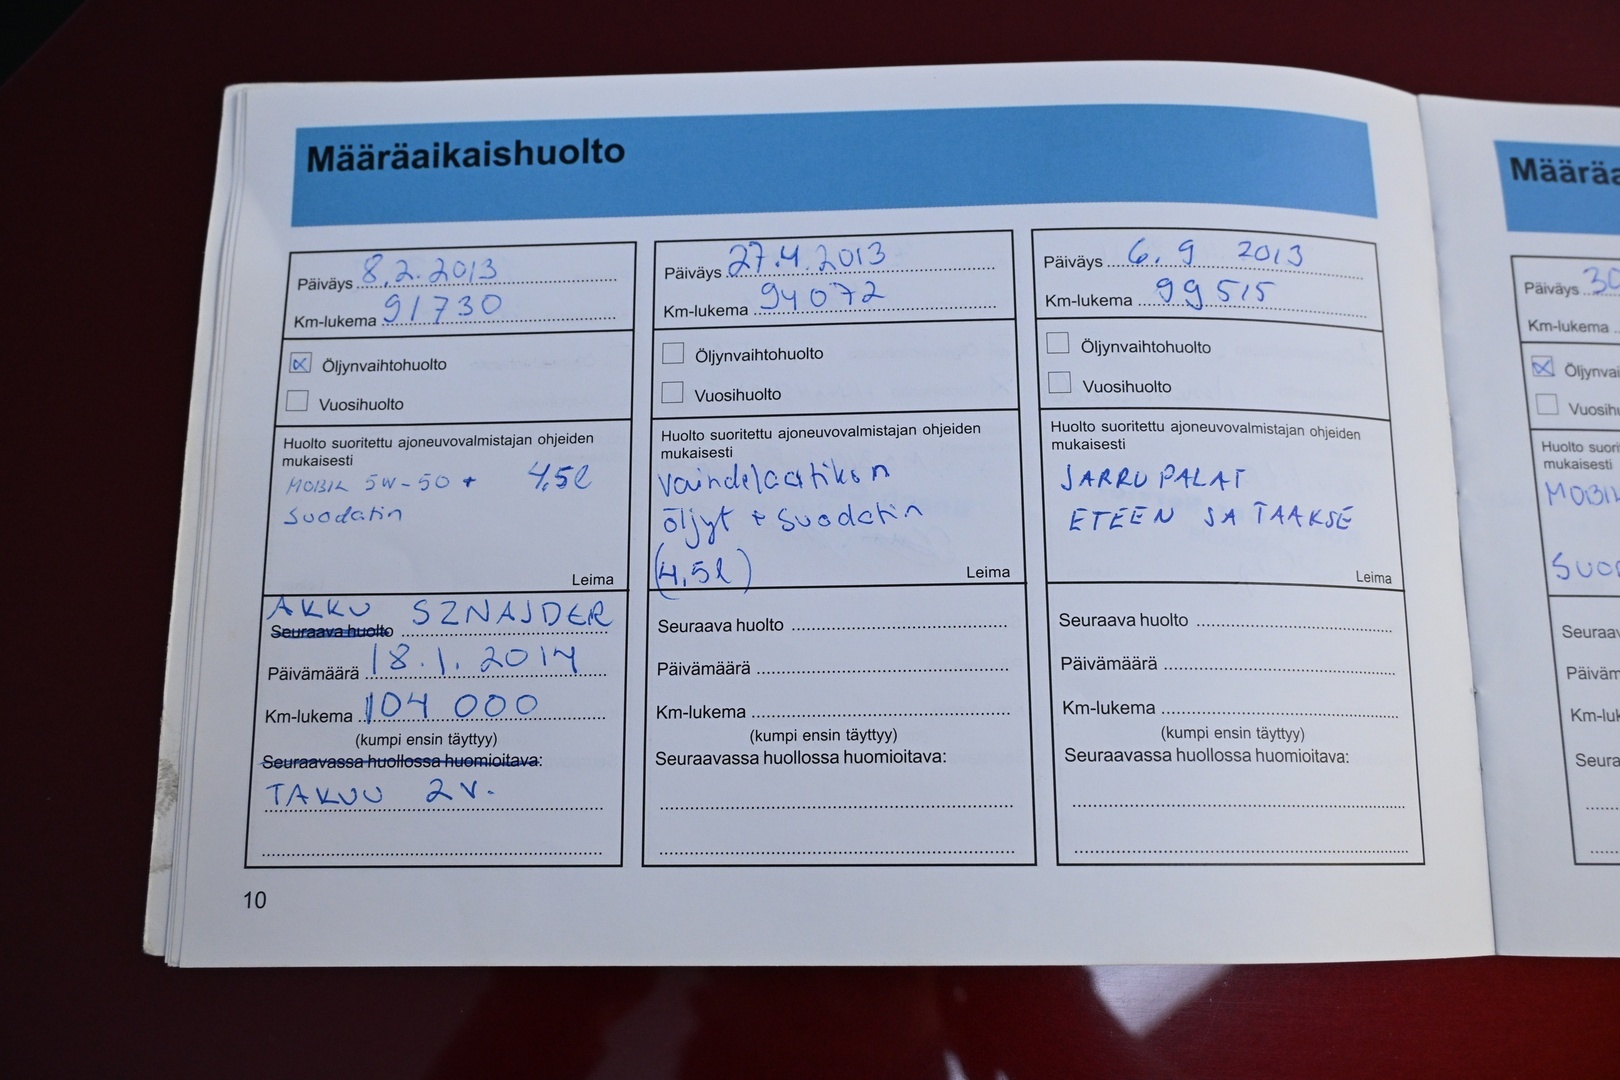 Määräaikaishuolto
Päiväys 8.2.2013
Km-lukema 91730
Öljynvaihtohuolto
Vuosihuolto
Huolto suoritettu ajoneuvovalmistajan ohjeiden
mukaisesti
MOBIL 5W-50 + 4,5l
suodatin
Leima
AKKU SZNAJDER
Seuraava huolto
Päivämäärä 18.1.2014
Km-lukema 104 000
(kumpi ensin täyttyy)
Seuraavassa huollossa huomioitava:
TAKUU 2V.
Päiväys 27.4.2013
Km-lukema 94072
Öljynvaihtohuolto
Vuosihuolto
Huolto suoritettu ajoneuvovalmistajan ohjeiden
mukaisesti
Vaihdelaatikon
öljyt + suodatin
(4,5l)
Leima
Seuraava huolto
Päivämäärä
Km-lukema
(kumpi ensin täyttyy)
Seuraavassa huollossa huomioitava:
Päiväys 6.9 2013
Km-lukema 99515
Öljynvaihtohuolto
Vuosihuolto
Huolto suoritettu ajoneuvovalmistajan ohjeiden
mukaisesti
JARRUPALAT
ETEEN JA TAAKSE
Leima
Seuraava huolto
Päivämäärä
Km-lukema
(kumpi ensin täyttyy)
Seuraavassa huollossa huomioitava:
10
Määräa
Päiväys 30
Km-lukema
Öljynvai
Vuosihu
Huolto suori
mukaisesti
MOBIL
suod
Seuraav
Päiväm
Km-luk
Seura